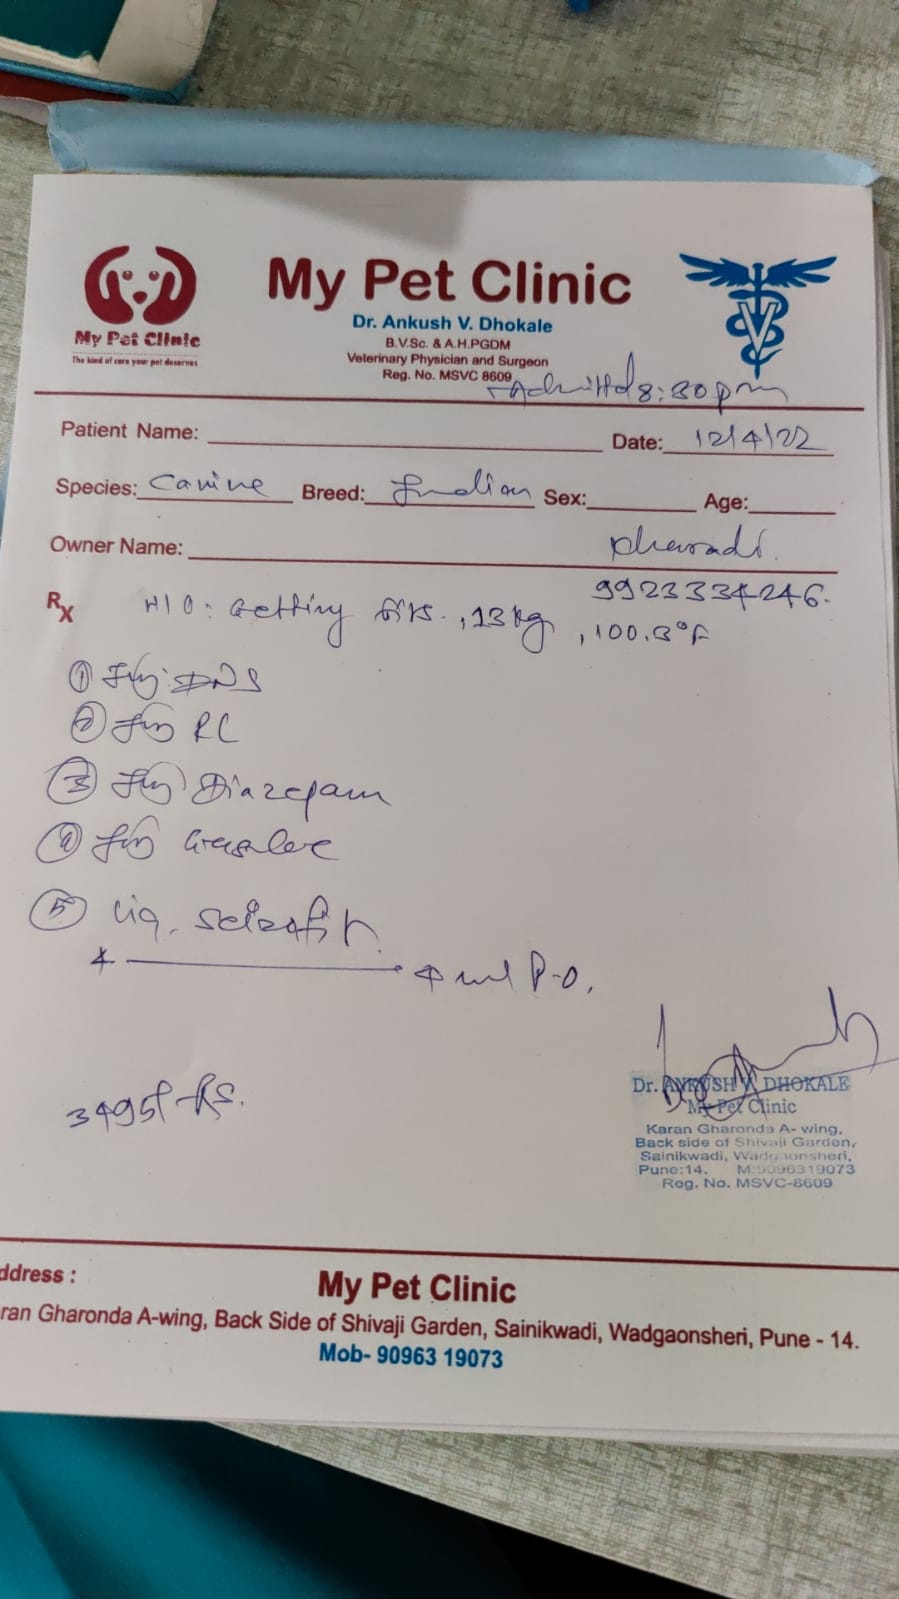 My Pet Clinic
The kind of care your pet deserves
My Pet Clinic
Dr. Ankush V. Dhokale
B.V.Sc. & A.H.PGDM
Veterinary Physician and Surgeon
Reg. No. MSVC 8609
Admitted 8:30pm
Patient Name:
Date: 12/4/22
Species: Canine Breed: Indian Sex: Age:
Owner Name: Kharadi.
9923334246.
Rx H/O: Getting fits., 13kg, 100.3°F
① Inj. DNS
② Inj RL
③ Inj Diazepam
④ Inj
⑤ Liq.
4 ml P.O.
Rs.
Dr. ANKUSH V. DHOKALE
My Pet Clinic
Karan Gharonda A- wing,
Back side of Shivaji Garden,
Sainikwadi, Wadgaonsheri,
Pune:14. M:9096319073
Reg. No. MSVC-8609
ddress :
My Pet Clinic
ran Gharonda A-wing, Back Side of Shivaji Garden, Sainikwadi, Wadgaonsheri, Pune - 14.
Mob- 90963 19073